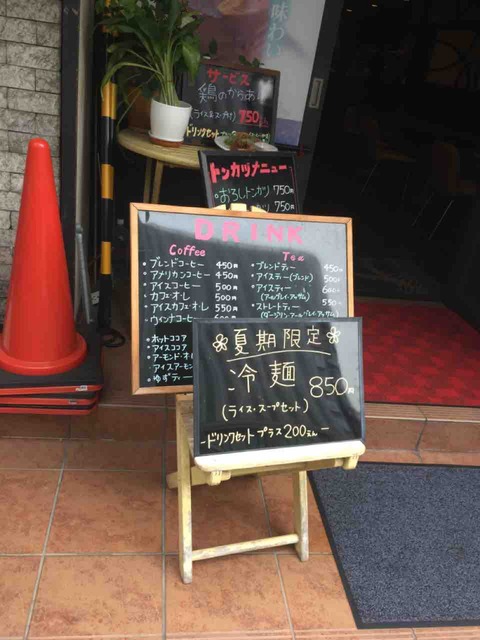 味わい
サービス
鶏のからあ
750
ドリンクセット
トンカツメニュー
おろしトンカツ 750円
750
DRINK
Coffee
・ブレンドコーヒー 450円
・アメリカンコーヒー 450円
・アイスコーヒー 500円
・カフェオ・レ 500円
・アイスカフェオ・レ 550円
・ウィンナコーヒー
・ホットココア
・アイスココア
・アーモンド・オ
・アイスアーモン
・ゆずティー
Tea
・ブレンドティー 450
・アイスティー(ブレンド) 500
・アイスティー
・ストレートティー 550
夏期限定
冷麺 850円
(ライス・スープセット)
-ドリンクセットプラス200えん-